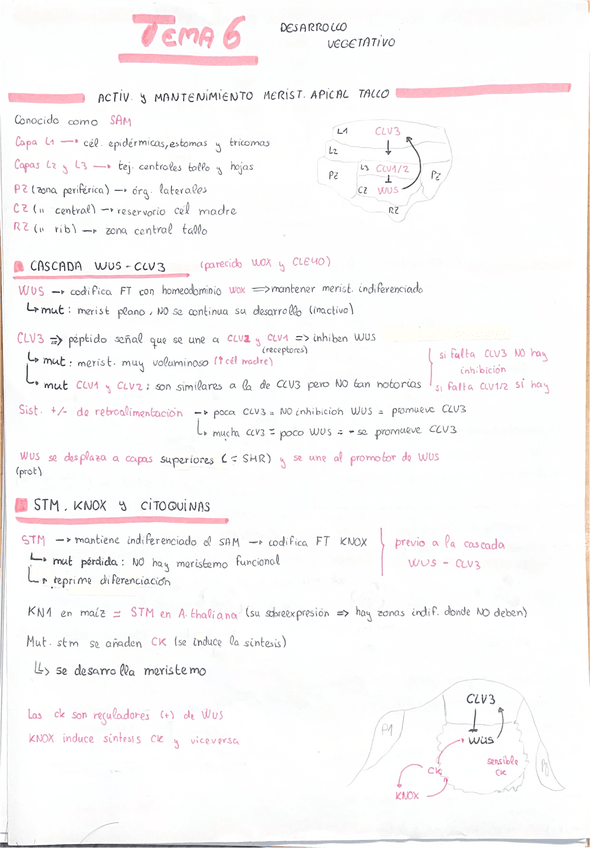 TEMA 6
DESARROLLO
VEGETATIVO
ACTIV. y MANTENIMIENTO MERIST. APICAL TALLO
Conocido como SAM
Capa L1 → cél. epidérmicas, estomas y tricomas
Capas L2 y L3 → tej. centrales tallo y hojas
PZ (zona periférica) → órg. laterales
CZ (" central) → reservorio cel madre
RZ (" rib) → zona central tallo
L1 CLV3
L2
L3 CLV1/2
PZ PZ
CZ WUS
RZ
CASCADA WUS - CLV3 (parecido WOX y CLE40)
WUS → codifica FT con homeodominio WOX => mantener merist. indiferenciado
↳ mut: merist plano, NO se continua su desarrollo (inactivo)
CLV3 => péptido señal que se une a CLV2 y CLV1 => inhiben WUS
(receptores)
↳ mut: merist. muy voluminoso (↑ cél madre)
↳ mut CLV1 y CLV2: son similares a la de CLV3 pero NO tan notorias
si falta CLV3 NO hay
inhibición
si falta CLV1/2 sí hay
Sist. +/- de retroalimentación → poca CLV3 = NO inhibicion WUS = promueve CLV3
↳ mucha CLV3 = poco WUS = - se promueve CLV3
WUS se desplaza a capas superiores (= SHR) y se une al promotor de WUS
(prot)
STM, KNOX y CITOQUINAS
STM → mantiene indiferenciado el SAM → codifica FT KNOX
↳ mut pérdida: NO hay meristemo funcional
↳ reprime diferenciación
previo a la cascada
WUS - CLV3
KN1 en maíz = STM en A.thaliana (su sobreexpresión => hay zonas indif. donde NO deben)
Mut. stm se añaden CK (se induce la síntesis)
↳ se desarrolla meristemo
Las ck son reguladores (+) de WUS
KNOX induce síntesis CK y viceversa
CLV3
P1
WUS
sensible
CK
CK
KNOX